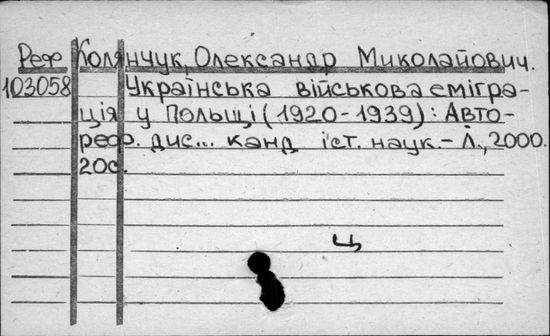 Реф Колянчук, Олександр Миколайович.
103058 Українська військова емігра-
ція у Польщі (1920-1939): Авто-
реф. дис... канд іст. наук.- Л., 2000.
20с.
Ц